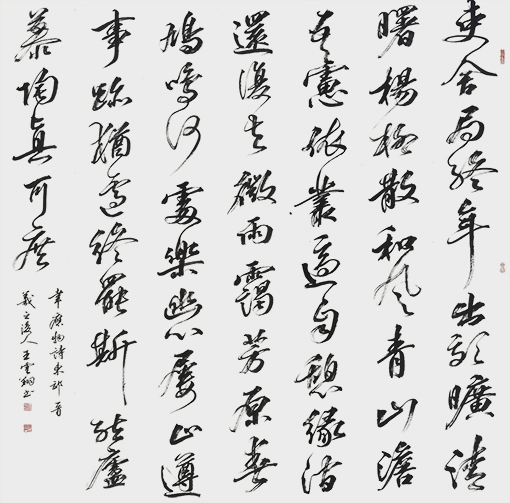 吏舍局終年出郊曠清
曙楊柳散和風青山澹
吾慮依叢適自憩緣澗
還復去微雨靄芳原春
鳩鳴何處樂幽心屢止遵
事跡猶遽終罷斯結廬
慕陶真可庶
韋應物詩東郊晉
羲之後人王雲翔书